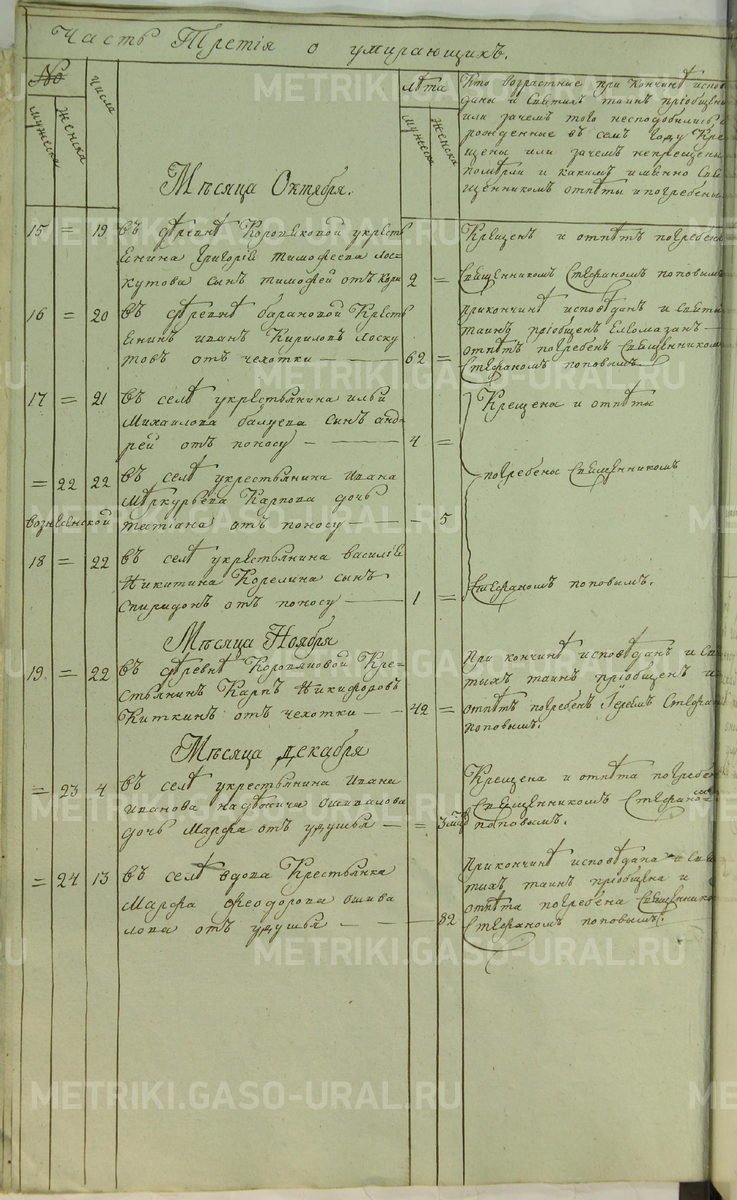 Часть Третія о умирающихъ.
№
мужеска
женска
числа
лѣта
мужеска
женска
Кто возрастные при кончинѣ испов
даны и Святыхъ таинъ пріобщены
или зачемъ того несподобились и
рожденные въ семъ году Кре
щены или зачемъ некрещены
померли и какимъ имянно Свя
щенникомъ отпѣты и погребены
Мѣсяца Октября.
15 = 19 въ деревнѣ укресть
янина Григорія Тимофеева Лос
кутова сынъ Тимофей от кори 2 =
Крещенъ и отпѣтъ погребенъ
Священникомъ Стефаномъ поповымъ
16 = 20 въ деревнѣ барановой Кресть
янинъ иванъ Кириловъ Лоску
товъ отъ чехотки 62 =
прикончинѣ исповѣданъ и святы
таинъ пріобщенъ Елеомазан
отпѣтъ погребенъ Священникомъ
Стефаномъ поповымъ
17 = 21 въ селѣ укрестьянина ильи
Михаилова балуева сынъ анд
рей отъ поносу 4 =
Крещены и отпѣты
= 22 22 въ селѣ укрестьянина Ивана
Меркурьева Карпова дочь
Вознесенской татіана отъ поносу - 5
погребены Священникомъ
18 = 22 въ селѣ укрестьянина василіе
Никитина Корелина сынъ
Спиридонъ отъ поносу 1 =
Стефаномъ поповымъ.
Мѣсяца Ноября
19 = 22 въ деревнѣ Кре
стьянинъ Карпъ Никифоровъ
Киткинъ отъ чехотки 42 =
При кончинѣ исповѣданъ и Свя
тыхъ таинъ пріобщенъ и
отпѣтъ погребенъ Іереемъ Стефан
поповымъ.
Мѣсяца декабря
= 23 4 въ селѣ укрестьянина Ивана
Иванова
дочь Марфа отъ удушья = 3
Крещена и отпѣта погребен
Священникомъ Стефаномъ
поповымъ.
= 24 13 въ селѣ вдова Крестьянка
Марфа феодорова ошива
лова отъ удушья - 82
Прикончинѣ исповѣдана и Свя
тыхъ таинъ пріобщена и
отпѣта погребена Священнико
Стефаномъ поповымъ.
METRIKI.GASO-URAL.RU